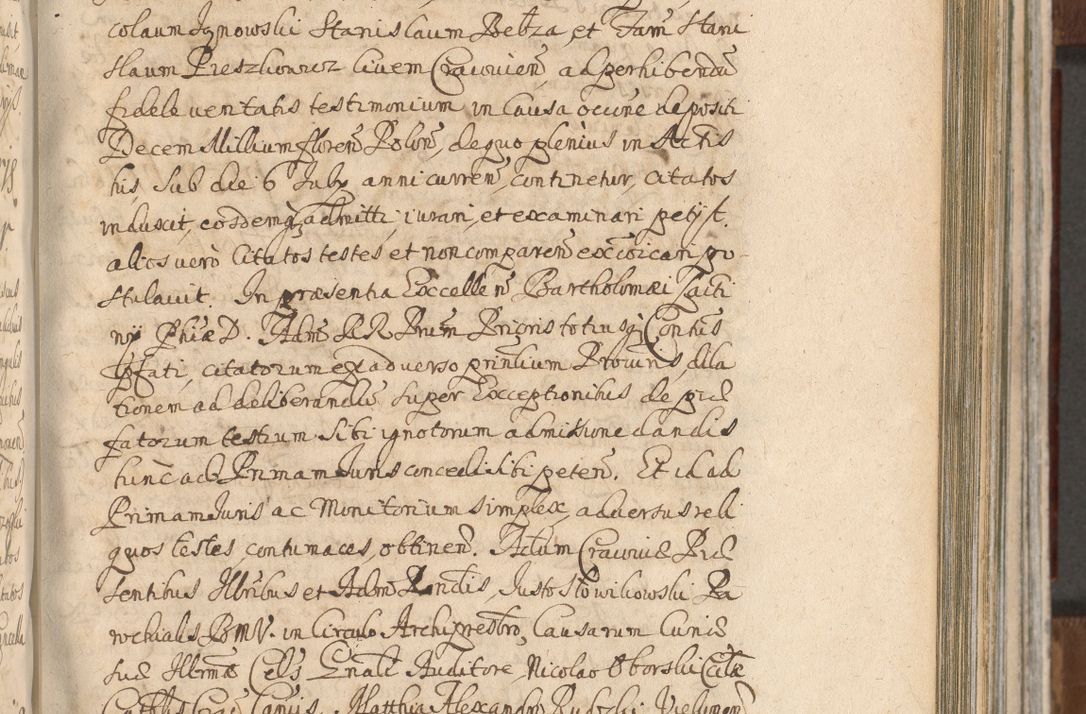 colaum Ignowski Stanislaum Bebza et Fam Stani
slaum Pieszkowicz Civem Cracovien̄ ad perhibendū
fidele veritatis testimonium in Causa ocōne depositi
Decem Millium floren̄ Polon̄, de quo plenius in Actis
his, sub die 6 July anni curren̄, continetur, citatos
induxit, eosdemq̨ admitti, iurari, et examinari petijt.
alios verò Citatos testes et non comparen̄ excōicari po
stulavit. In præsentia Excellen̄ Bartholomæi Tacti
nÿ Phiæ D. Adm̄ R. R. Prum Prioris totiusq̨ Conv̄tus
citatorum ex adverso prin̄lium Provinc̄s, dila
tionem ad deliberandū super Exceptionibus de præ
fatorum testium sibi ignotorum admissione dandis
hinc ad Primam Juris concedi sibi peten̄. Et id ad
Primam Juris ac Monitorium simplex, adversus reli
quos testes contumaces, obtinen̄. Actum Cracoviæ Præ
sentibus Illribus et Adm̄ R̄ndis, Justo Słowikowski Pa
rochialis BMV. in Circulo Archipresbro, Causarum Curiæ
suæ Illrmæ Cels Gn̄alis Auditore, Nicolao Oborski
Matthia Alexandro Rudzki Vielunen̄